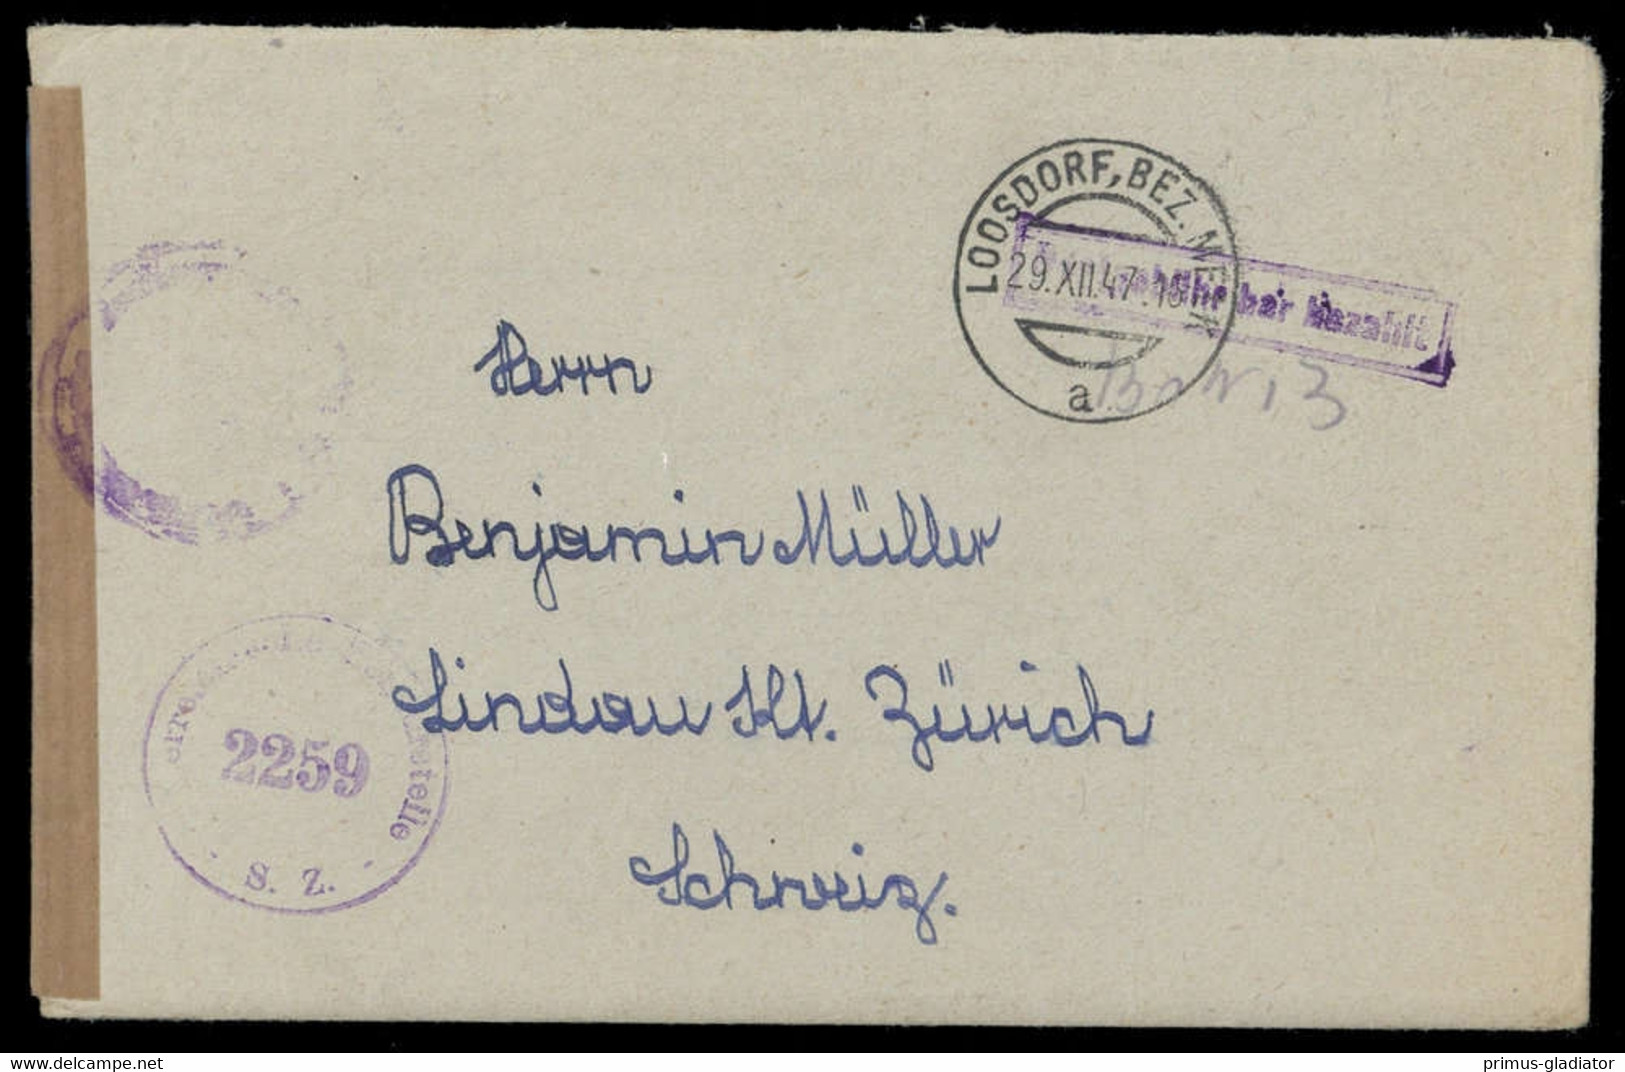 LOOSDORF, BEZ. MELK
29.XII.47.
a
bar bezahlt
Herrn
Benjamin Müller
Lindau Kt. Zürich
Schweiz.
2259
S. Z.
delcampe.net
primus-gladiator